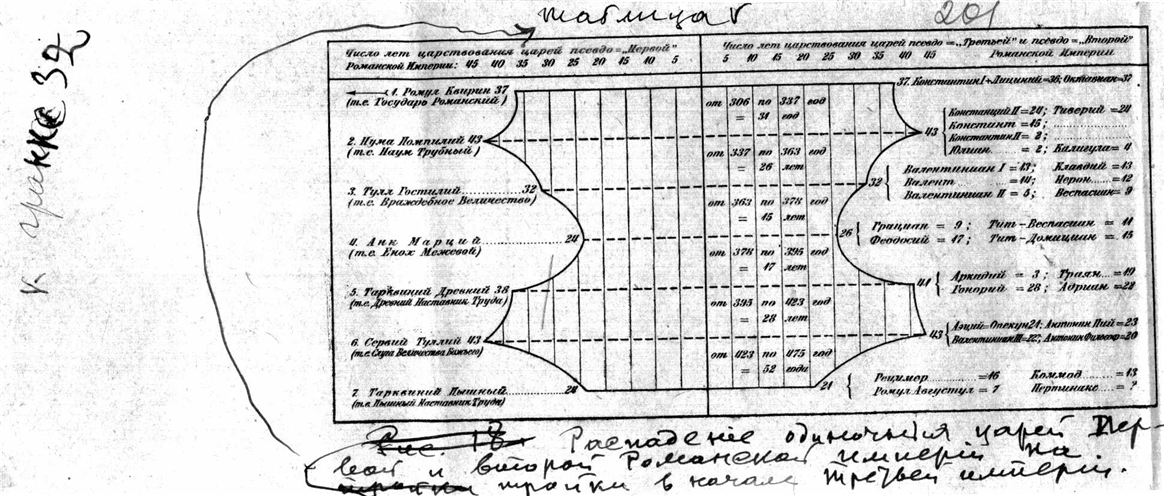 таблица V
201
к графике 32
Число лет царствования царей псевдо=„Первой“
Романской Империи: 45 40 35 30 25 20 15 10 5
Число лет царствования царей псевдо=„Третьей“ и псевдо=„Второй“
5 10 15 20 25 30 35 40 45 Романской Империи
1. Ромул Квирин 37
(т.е. Государь Романский)
2. Нума Помпилий 43
(т.е. Наум Трубный)
3. Тулл Гостилий 32
(т.е. Враждебное Величество)
4. Анк Марций 24
(т.е. Енох Межевой)
5. Тарквиний Древний 38
(т.е. Древний Наставник Труда)
6. Сервий Туллий 43
(т.е. Слуга Величества Божьего)
7. Тарквиний Пышный 24
(т.е. Пышный Наставник Труда)
от 306 по 337 год
= 31 год
от 337 по 363 год
= 26 лет
от 363 по 378 год
= 15 лет
от 378 по 395 год
= 17 лет
от 395 по 423 год
= 28 лет
от 423 по 475 год
= 52 года
37. Константин I + Лициний = 36; Октавиан = 37
43
Констанций II = 24; Тиверий = 24
Констант = 15;
Константин II = 2;
Юлиан = 2; Калигула = 4
32
Валентиниан I = 13; Клавдий = 13
Валент = 14; Нерон = 12
Валентиниан II = 5; Веспасиан = 9
26
Грациан = 9; Тит-Веспасиан = 11
Феодосий = 17; Тит-Домициан = 15
41
Аркадий = 3; Траян = 19
Гонорий = 28; Адриан = 22
43
Аэций = Опекун 21; Антонин Пий = 23
Валентиниан III = 22; Антонин Философ = 20
21
Рецимер = 16 Коммод = 13
Ромул Августул = 7 Пертинакс = ?
Рис. Распадение одиночных царей Пер-
вой и второй Романской империи на
тройки в начале третьей империи.